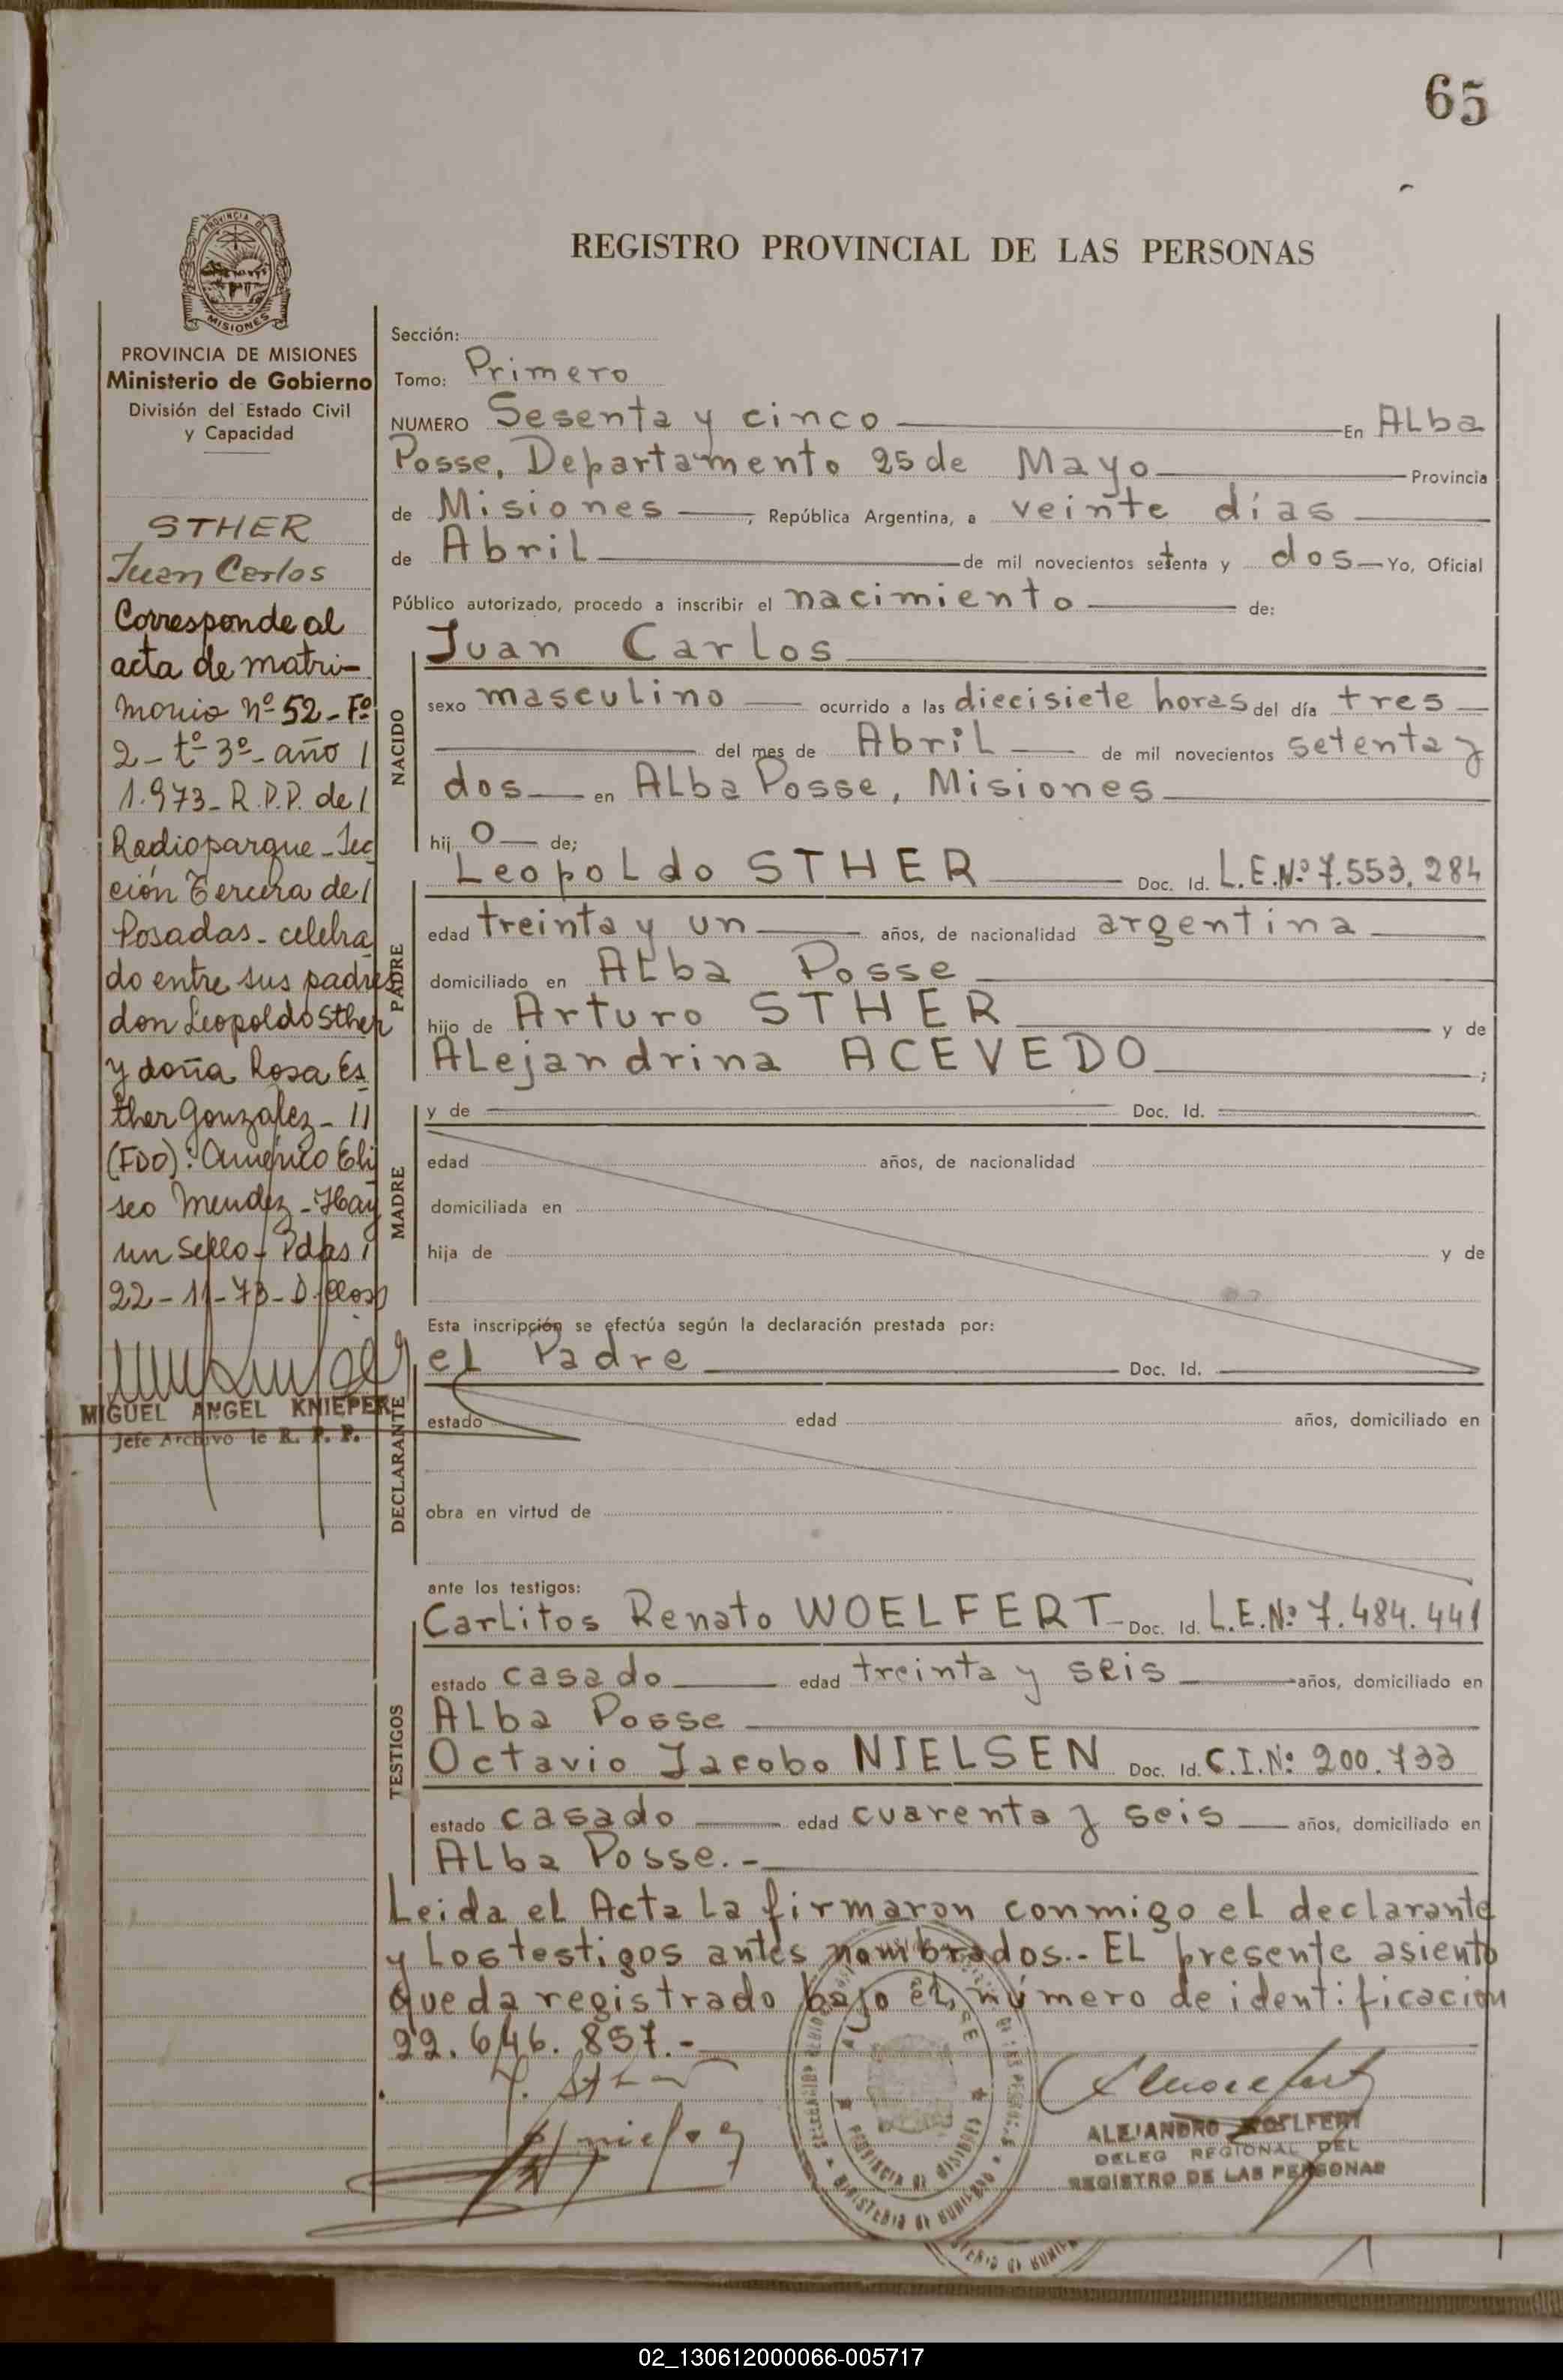 65
REGISTRO PROVINCIAL DE LAS PERSONAS
PROVINCIA DE MISIONES
Ministerio de Gobierno
División del Estado Civil
y Capacidad
STHER
Juan Carlos
Corresponde al
acta de matri-
monio nº 52 - Fº
2 - tº 3º - año /
1.973 - R.P.P. de /
Radioparque - Sec
ción Tercera de /
Posadas - celebra
do entre sus padres
don Leopoldo Sther
y doña Rosa Es
ther Gonzalez - //
(FDO): Américo Eli
seo Mendez - Hay
un sello - Pdas /
22 - 11 - 73 -
MIGUEL ANGEL KNIEPER
Jefe Archivo de R. P. P.
Sección:
Tomo: Primero
NUMERO Sesenta y cinco En ALba
Posse, Departamento 25 de Mayo Provincia
de Misiones, República Argentina, a veinte días
de Abril de mil novecientos setenta y dos Yo, Oficial
Público autorizado, procedo a inscribir el nacimiento de:
NACIDO
Juan Carlos
sexo masculino ocurrido a las diecisiete horas del día tres
del mes de Abril de mil novecientos setenta y
dos en ALba Posse, Misiones
hij o de;
PADRE
Leopoldo STHER Doc. Id. L.E.Nº 7.553.284
edad treinta y un años, de nacionalidad argentina
domiciliado en ALba Posse
hijo de Arturo STHER y de
ALejandrina ACEVEDO ;
MADRE
y de Doc. Id.
edad años, de nacionalidad
domiciliada en
hija de y de
Esta inscripción se efectúa según la declaración prestada por:
DECLARANTE
eL Padre Doc. Id.
estado edad años, domiciliado en
obra en virtud de
ante los testigos:
TESTIGOS
Carlitos Renato WOELFERT Doc. Id. L.E.Nº 7.484.441
estado casado edad treinta y seis años, domiciliado en
ALba Posse
Octavio Jacobo NIELSEN Doc. Id. C.I.Nº 200.733
estado casado edad cuarenta y seis años, domiciliado en
ALba Posse.-
Leida el Acta La firmaron conmigo eL declarante
y Los testigos antes nombrados.- EL presente asiento
queda registrado bajo eL número de identificacion
22.646.857.-
ALEJANDRO WOELFERT
DELEG REGIONAL DEL
REGISTRO DE LAS PERSONAS
PROVINCIA DE MISIONES
MINISTERIO DE GOBIERNO
02_130612000066-005717